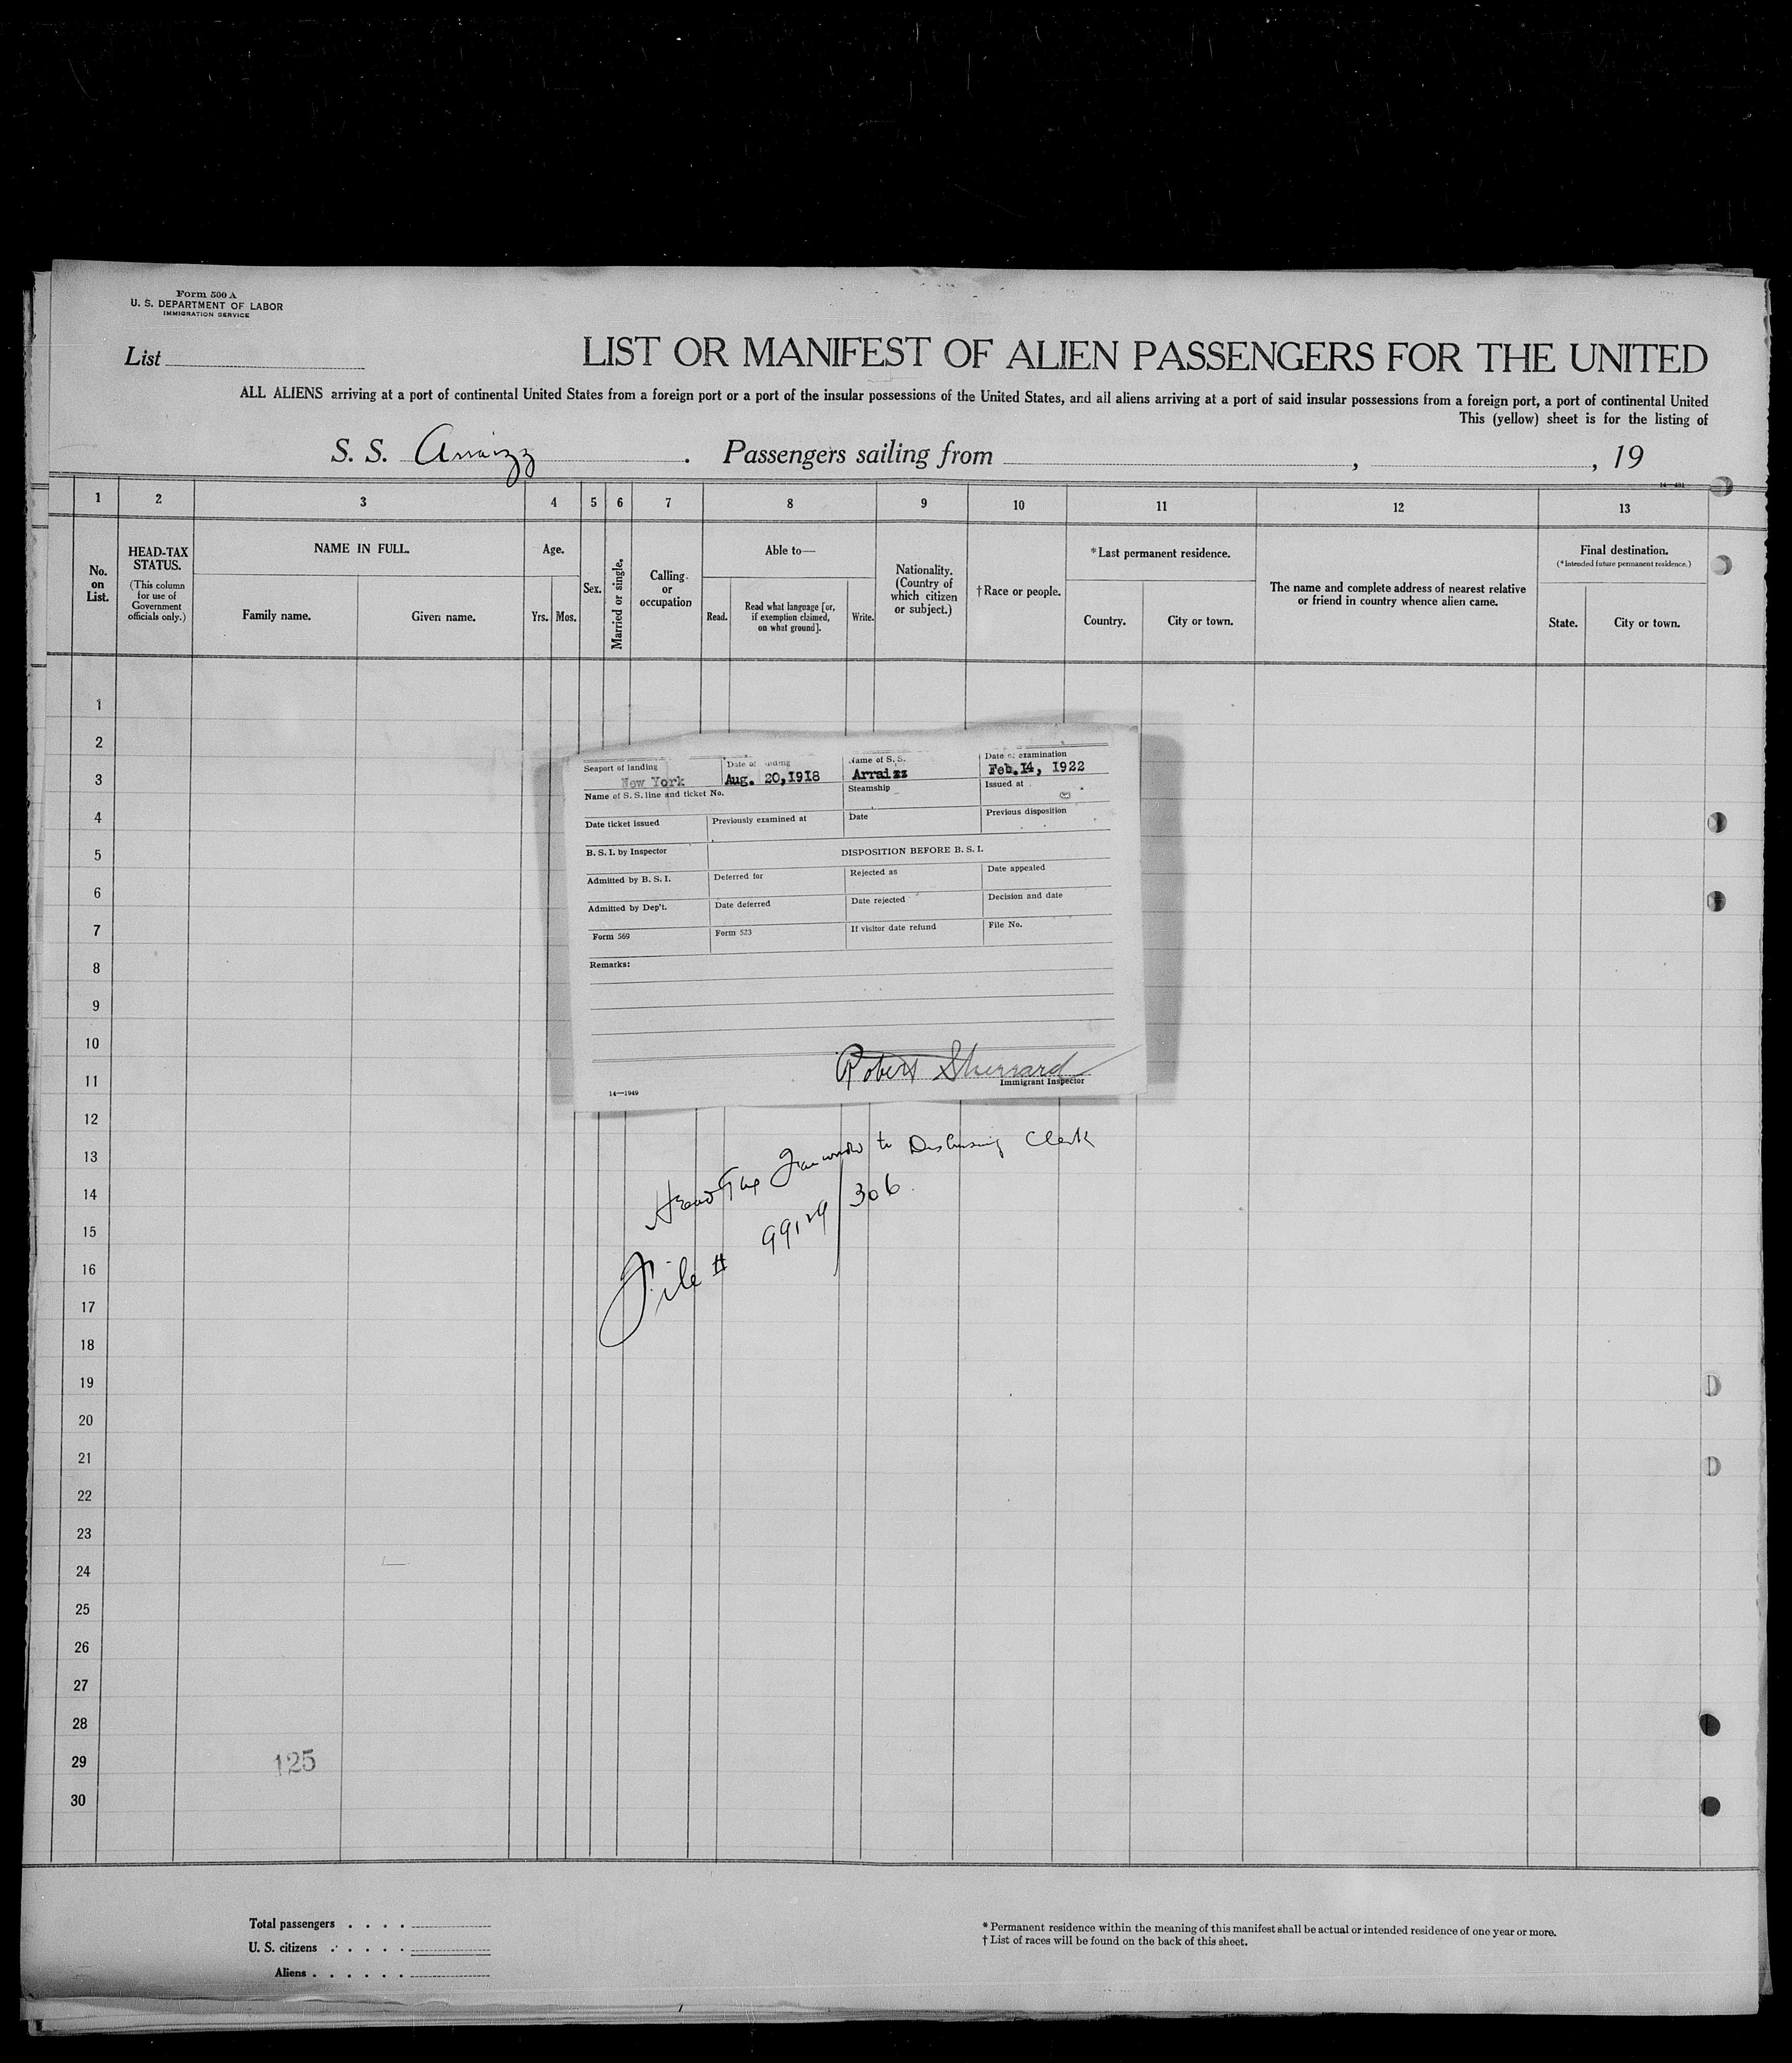 Form 500 A
U. S. DEPARTMENT OF LABOR
IMMIGRATION SERVICE
List
LIST OR MANIFEST OF ALIEN PASSENGERS FOR THE UNITED
ALL ALIENS arriving at a port of continental United States from a foreign port or a port of the insular possessions of the United States, and all aliens arriving at a port of said insular possessions from a foreign port, a port of continental United
This (yellow) sheet is for the listing of
S. S. Arraizz . Passengers sailing from , , 19
1 2 3 4 5 6 7 8 9 10 11 12 13
No. on List.
HEAD-TAX STATUS.
(This column for use of Government officials only.)
NAME IN FULL.
Family name.
Given name.
Age.
Yrs.
Mos.
Sex.
Married or single.
Calling or occupation
Able to—
Read.
Read what language [or, if exemption claimed, on what ground].
Write.
Nationality. (Country of which citizen or subject.)
†Race or people.
*Last permanent residence.
Country.
City or town.
The name and complete address of nearest relative or friend in country whence alien came.
Final destination.
(*Intended future permanent residence.)
State.
City or town.
1
2
3
4
5
6
7
8
9
10
11
12
13
14
15
16
17
18
19
20
21
22
23
24
25
26
27
28
29
30
Seaport of landing
New York
Date of landing
Aug. 20,1918
Name of S. S.
Arraizz
Date of examination
Feb.14, 1922
Name of S. S. line and ticket No.
Steamship
Issued at
Date ticket issued
Previously examined at
Date
Previous disposition
B. S. I. by Inspector
DISPOSITION BEFORE B. S. I.
Admitted by B. S. I.
Deferred for
Rejected as
Date appealed
Admitted by Dep't.
Date deferred
Date rejected
Decision and date
Form 569
Form 523
If visitor date refund
File No.
Remarks:
Robert Sherrard
Immigrant Inspector
14—1949
Head Tax to Disbursing Clerk
File # 99129/306
125
Total passengers . . . .
U. S. citizens . . . . .
Aliens . . . . . .
* Permanent residence within the meaning of this manifest shall be actual or intended residence of one year or more.
† List of races will be found on the back of this sheet.